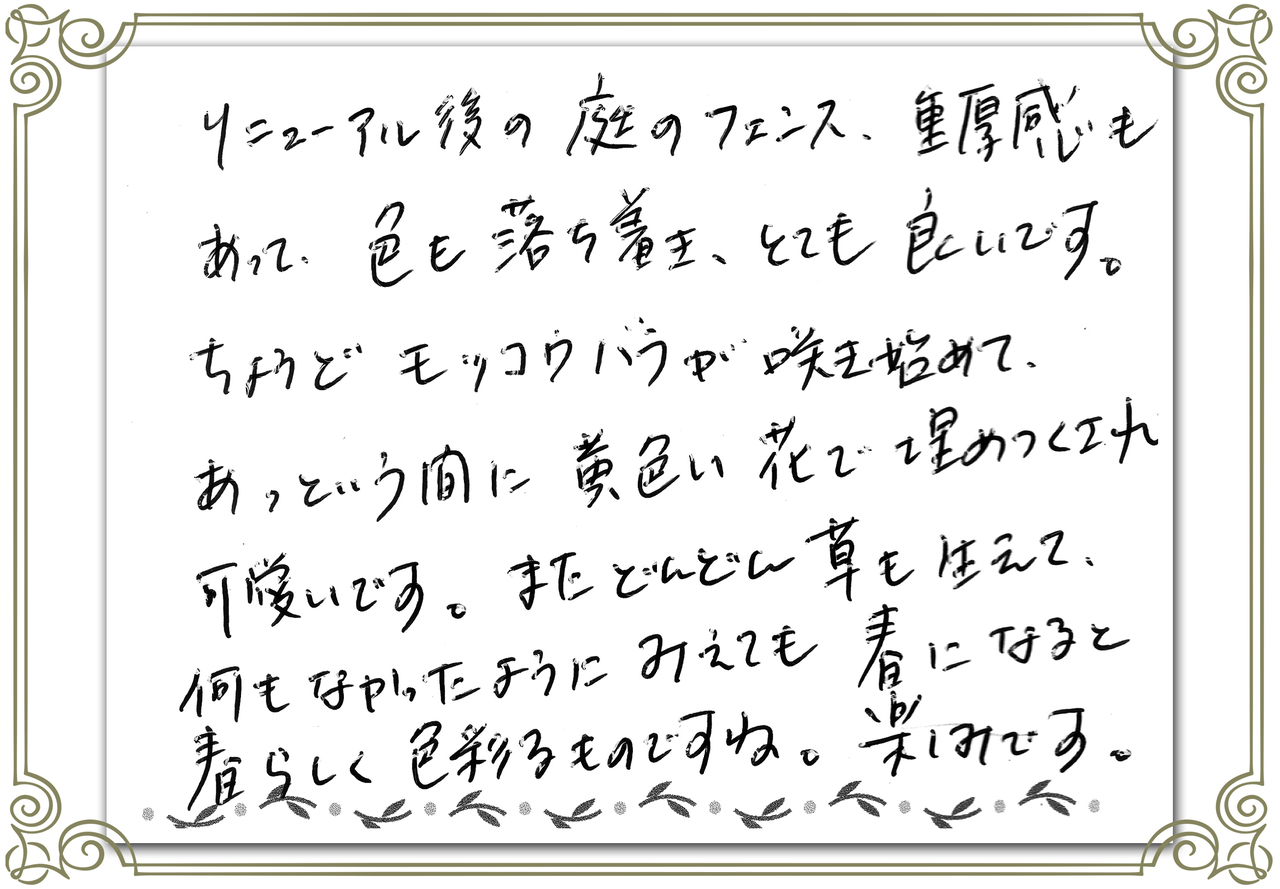 リニューアル後の庭のフェンス、重厚感も
あって、色も落ち着き、とても良いです。
ちょうどモッコウバラが咲き始めて、
あっという間に黄色い花で埋めつくされ
可愛いです。まだどんどん草も生えて、
何もなかったようにみえても春になると
春らしく色彩るものですね。楽しみです。